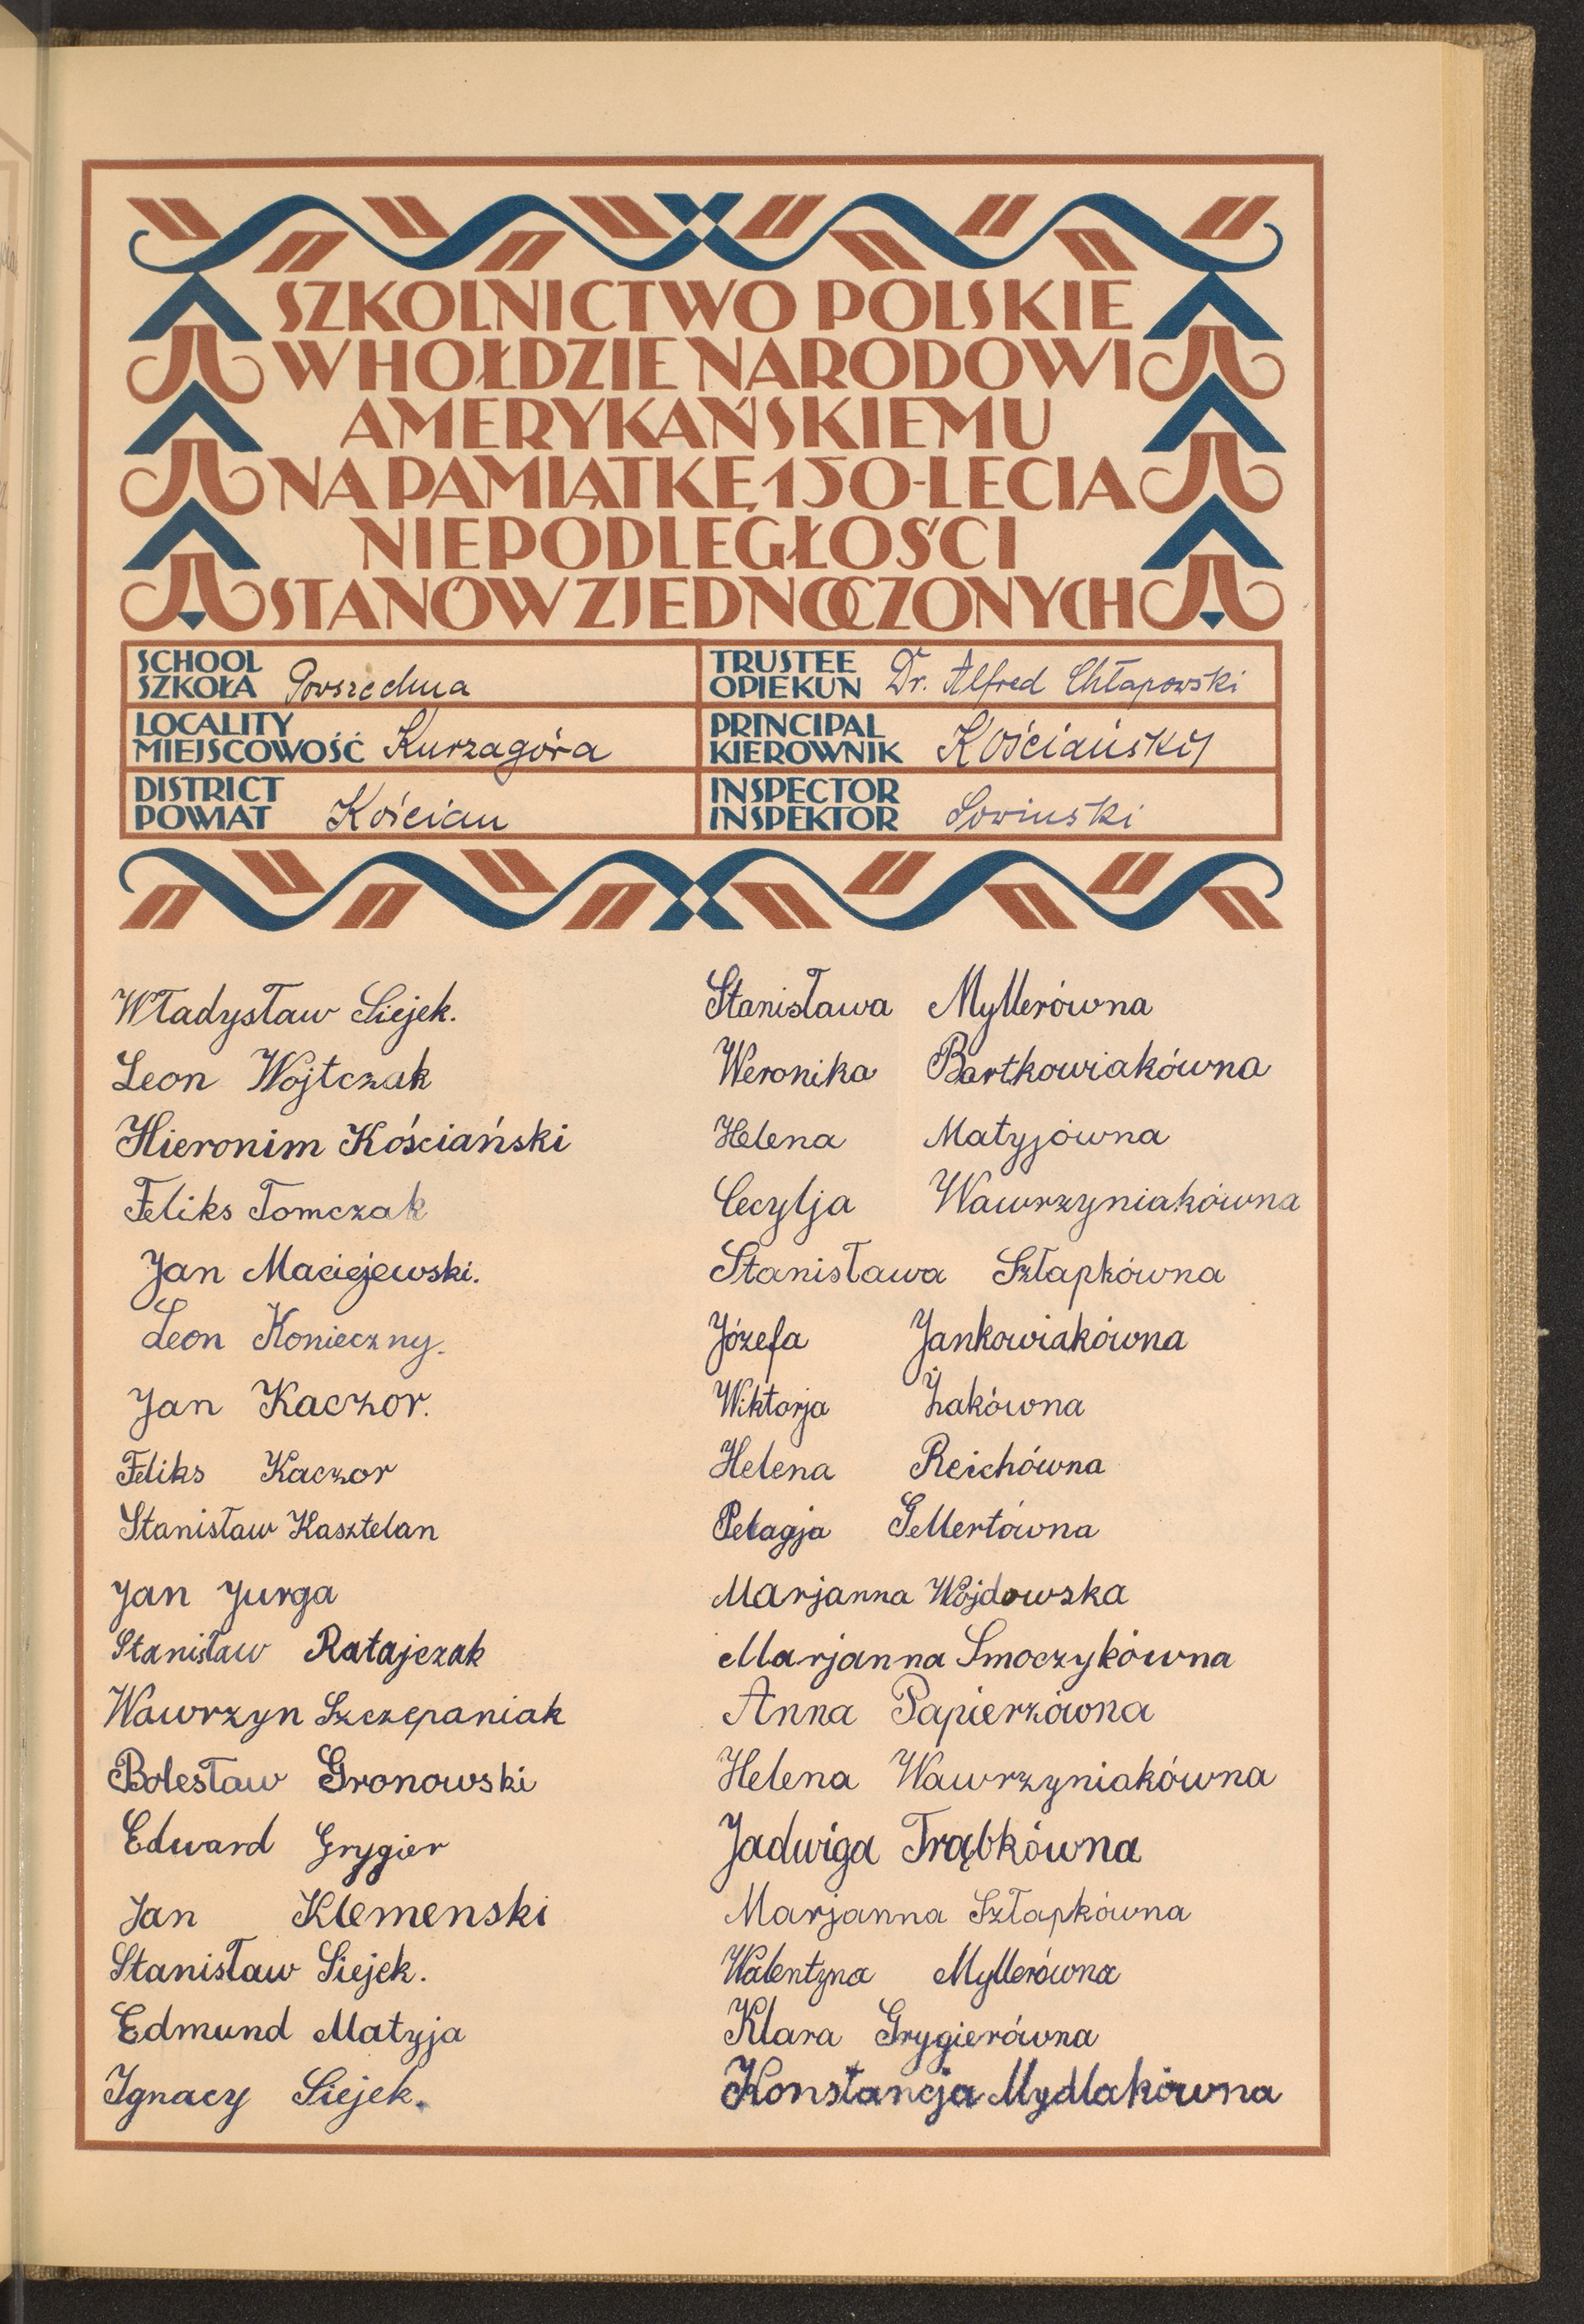 SZKOLNICTWO POLSKIE
W HOŁDZIE NARODOWI
AMERYKAŃSKIEMU
NA PAMIĄTKĘ 150-LECIA
NIEPODLEGŁOŚCI
STANÓW ZJEDNOCZONYCH
SCHOOL
SZKOŁA Powszechna
TRUSTEE
OPIEKUN Dr. Alfred Chłapowski
LOCALITY
MIEJSCOWOŚĆ Kurzagóra
PRINCIPAL
KIEROWNIK Kościański
DISTRICT
POWIAT Kościan
INSPECTOR
INSPEKTOR Sowinski
Władysław Siejek.
Leon Wojtczak
Hieronim Kościański
Feliks Tomczak
Jan Maciejewski.
Leon Konieczny.
Jan Kaczor.
Feliks Kaczor
Stanisław Kasztelan
Jan Jurga
Stanisław Ratajczak
Wawrzyn Szczepaniak
Bolesław Gronowski
Edward Grygier
Jan Klemenski
Stanisław Siejek.
Edmund Matyja
Ignacy Siejek.
Stanisława Myllerówna
Weronika Bartkowiakówna
Helena Matyjówna
Cecylja Wawrzyniakówna
Stanisława Szłapkówna
Józefa Jankowiakówna
Wiktorja Żakówna
Helena Reichówna
Pelagja Gellertówna
Marjanna Wojdowska
Marjanna Smoczykówna
Anna Papierzówna
Helena Wawrzyniakówna
Jadwiga Trąbkówna
Marjanna Szłapkówna
Walentyna Myllerówna
Klara Grygierówna
Konstancja Mydlakówna